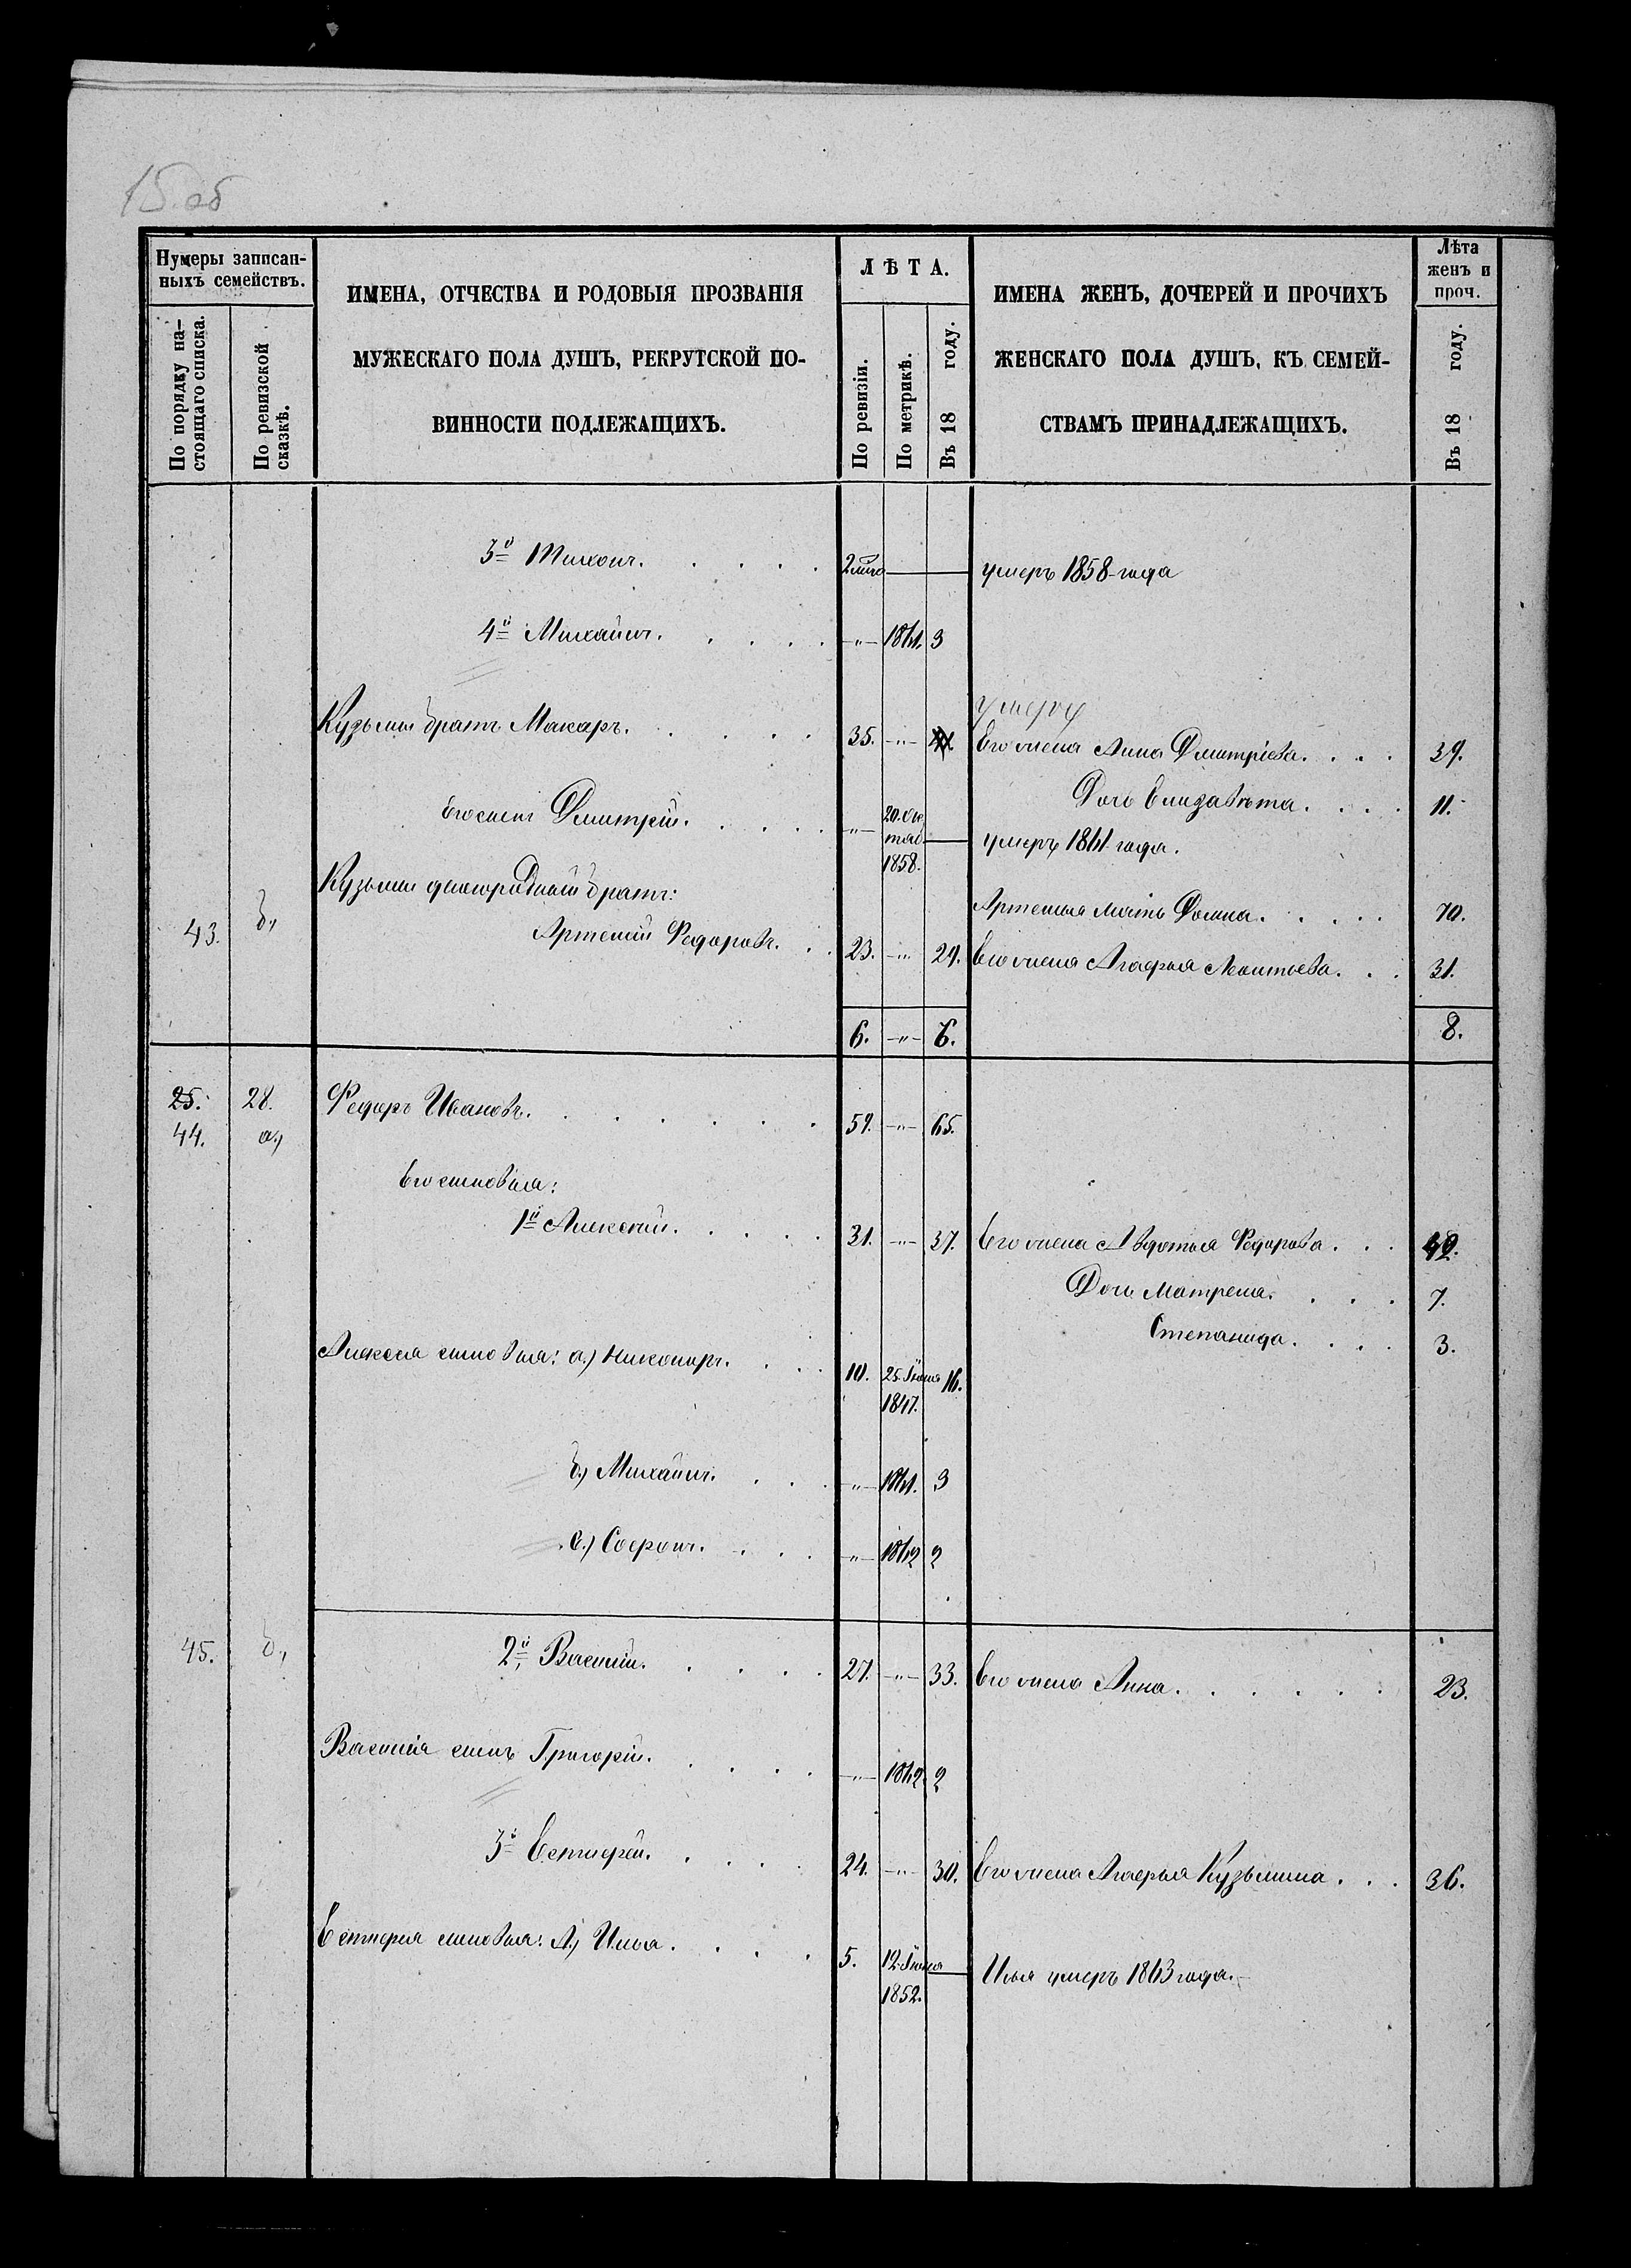 15.об
Нумеры записан-
ныхъ семействъ.
По порядку на-
стоящаго списка.
По ревизской
сказкѣ.
ИМЕНА, ОТЧЕСТВА И РОДОВЫЯ ПРОЗВАНІЯ
МУЖЕСКАГО ПОЛА ДУШЪ, РЕКРУТСКОЙ ПО-
ВИННОСТИ ПОДЛЕЖАЩИХЪ.
ЛѢТА.
По ревизіи.
По метрикѣ.
Въ 18 году.
ИМЕНА ЖЕНЪ, ДОЧЕРЕЙ И ПРОЧИХЪ
ЖЕНСКАГО ПОЛА ДУШЪ, КЪ СЕМЕЙ-
СТВАМЪ ПРИНАДЛЕЖАЩИХЪ.
Лѣта
женъ и
проч.
Въ 18 году.
3й Тихонъ. умеръ 1858 года
4й Михаилъ. -"- 1861. 3
умеръ
Кузьмы братъ Макаръ. 35. -"- Его жена Анна Дмитріева. 39.
Дочь Елизавѣта. 11.
Его сынъ Дмитрій. -"- 20. Ок
тяб.
1858. умеръ 1861 года.
Кузьмы двоюродный братъ:
Артемья мать Домна. 70.
43. б, Артемій Федоровъ. 23. -"- 29. Его жена Агафья Леонтьева. 31.
6. -"- 6. 8.
25. 28. Федоръ Ивановъ. 59. -"- 65.
44. а,)
Его сыновья:
1й Алексѣй. 31. -"- 37. Его жена Авдотья Федорова.
Дочь Матрена. 7.
Степанида. 3.
Алексѣя сыновья: а.) Никоноръ. 10. 16.
1847.
б.) Михаилъ. -"- 1861. 3
в.) Софронъ. -"- 1862 2
45. б, 2й, Василій. 27. -"- 33. Его жена Анна. 23.
Василія сынъ Григорій. -"- 1862. 2
3й Евстигней. 24. -"- 30. Его жена Агафья Кузьмина. 36.
Евстигнея сыновья: А,) Илья. 5. 12
1852. Илья умеръ 1863 года.